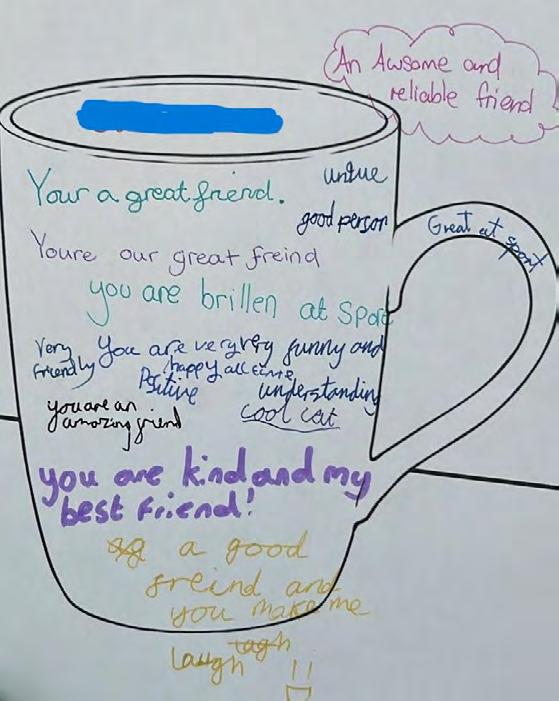 An Awsome and
reliable friend
Your a great friend.
unque
good person
Great at sport
Youre our great freind
you are brillen at Sport
Very
friendly
You are very very funny and
happy all time
Positive
understanding
you are an
amazing friend
cool cat
you are kind and my
best friend!
a good
freind and
you make me
laugh
!!